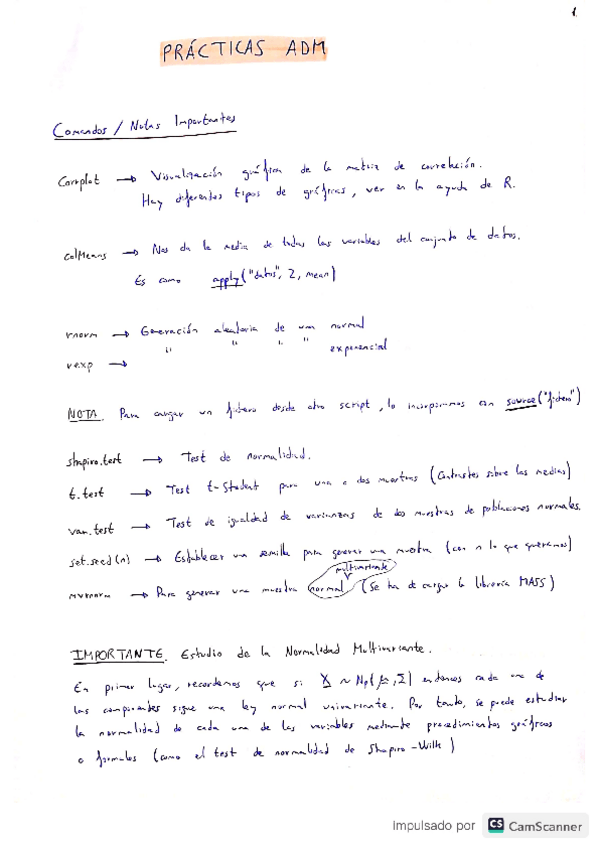 1
PRÁCTICAS ADM
Comandos / Notas Importantes
Corrplot → Visualización gráfica de la matriz de correlación.
Hay diferentes tipos de gráficas, ver en la ayuda de R.
colMeans → Nos da la media de todas las variables del conjunto de datos.
Es como apply("datos", 2, mean)
rnorm → Generación aleatoria de una normal
rexp → " " " " exponencial
NOTA. Para cargar un fichero desde otro script, lo incorporamos con source("fichero")
shapiro.test → Test de normalidad.
t.test → Test t-Student para una o dos muestras (Contrastes sobre las medias)
var.test → Test de igualdad de varianzas de dos muestras de poblaciones normales.
set.seed(n) → Establecer una semilla para generar una muestra (con n lo que queramos)
multivariante
mvrnorm → Para generar una muestra normal (Se ha de cargar la librería MASS)
IMPORTANTE. Estudio de la Normalidad Multivariante.
En primer lugar, recordemos que si X ~ Np(μ, Σ) entonces cada una de
las componentes sigue una ley normal univariante. Por tanto, se puede estudiar
la normalidad de cada una de las variables mediante procedimientos gráficos
o formales (como el test de normalidad de Shapiro-Wilk)
Impulsado por CS CamScanner